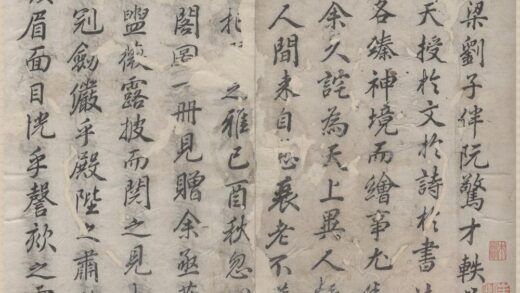 梁劉子伴阮驚才軼
天授於文於詩於書
各臻神境而繪事尤
余久詫為天上異人
人間来自思衰老不
之雅己酉秋忽
閣圖一冊見贈余亟
盥薇露披而閱之見
冠劍儼乎殿陛之肅
眉面目恍乎謦欬之